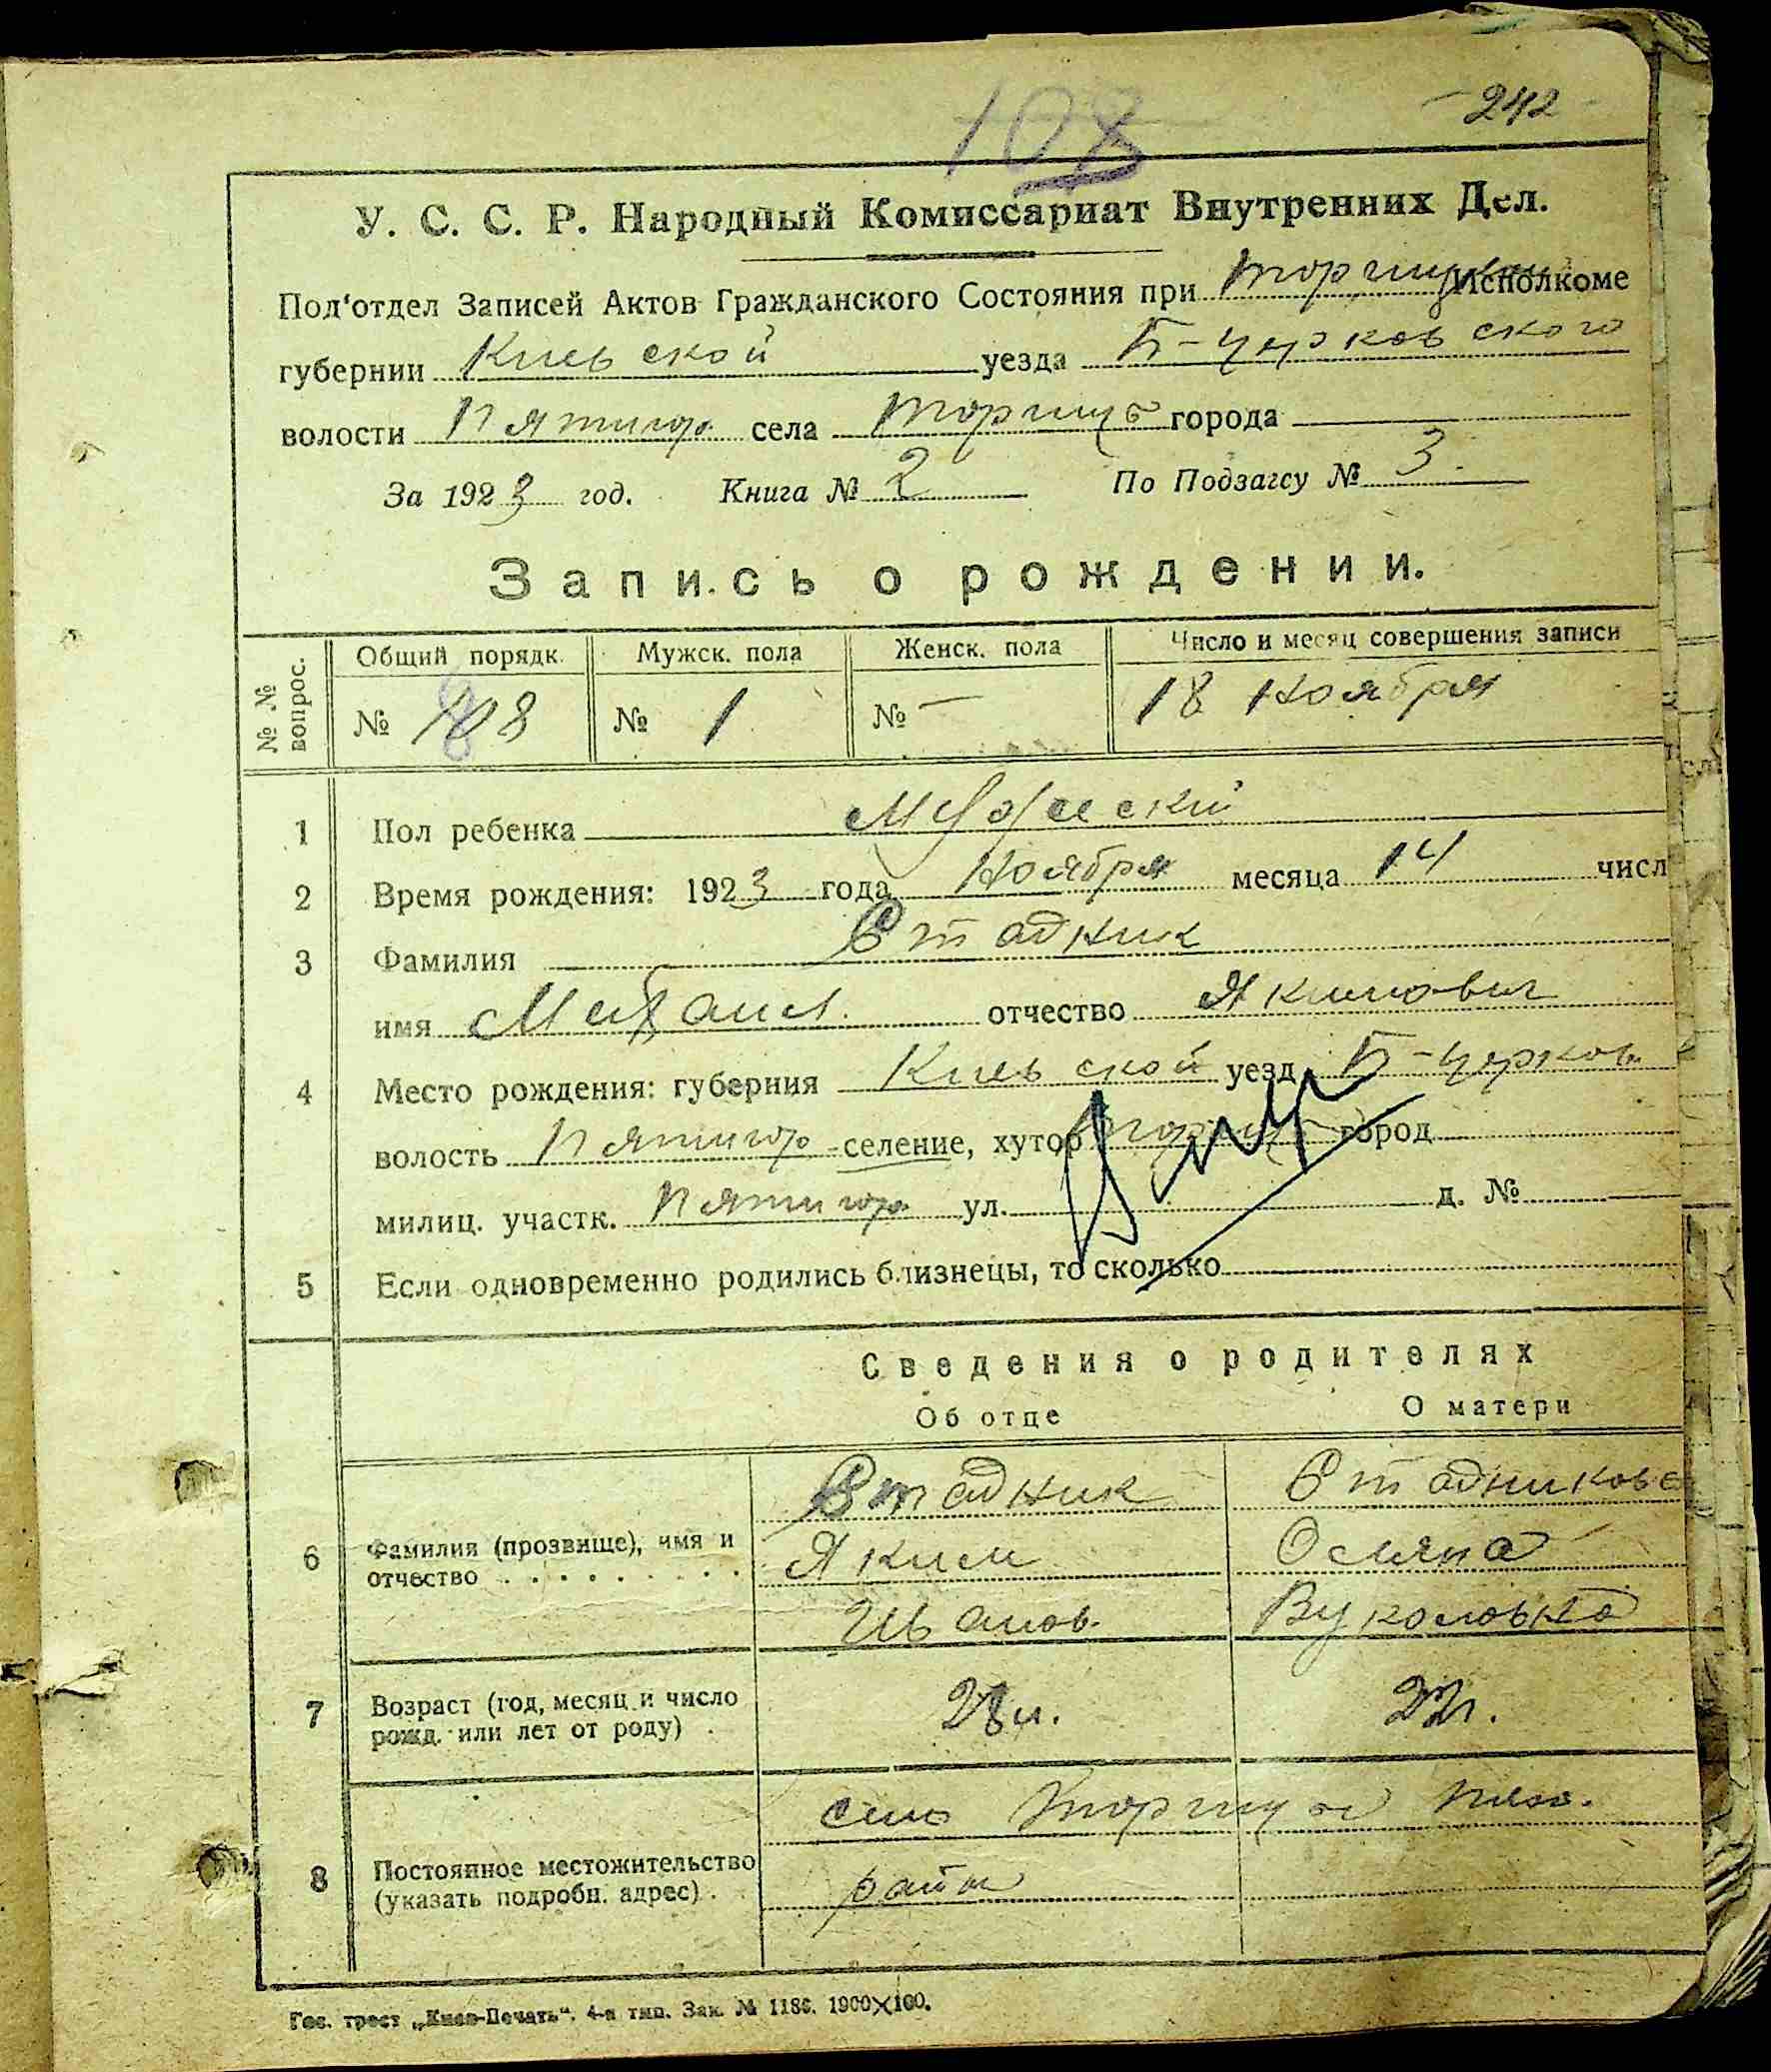 108
242
У. С. С. Р. Народный Комиссариат Внутренних Дел.
Под‘отдел Записей Актов Гражданского Состояния при Торчицком Исполкоме
губернии Киевской уезда Б-Церковского
волости Пятигор. села Торчица города
За 1923 год. Книга № 2 По Подзагсу № 3.
Запись о рождении.
№ № вопрос. Общий порядк. Мужск. пола Женск. пола Число и месяц совершения записи
№ 108 № 1 № — 18 Ноября
1 Пол ребенка Мужеский
2 Время рождения: 1923 года Ноября месяца 14 числ
3 Фамилия Стадник
имя Михаил. отчество Якимович
4 Место рождения: губерния Киевской уезд Б-Церков.
волость Пятигор. селение, хутор город
милиц. участк. Пятигор. ул. д. №
5 Если одновременно родились близнецы, то сколько
Сведения о родителях
Об отце О матери
Стадник Стадникова
6 Фамилия (прозвище), имя и Яким
отчество
Иванов. Вуколовна
7 Возраст (год, месяц и число 28 л. 22 л.
рожд. или лет от роду)
село Торчица Пят.
8 Постоянное местожительство
(указать подробн. адрес) района
Гос. трест „Киев-Печать“. 4-я тип. Зак. № 1186. 1900×100.